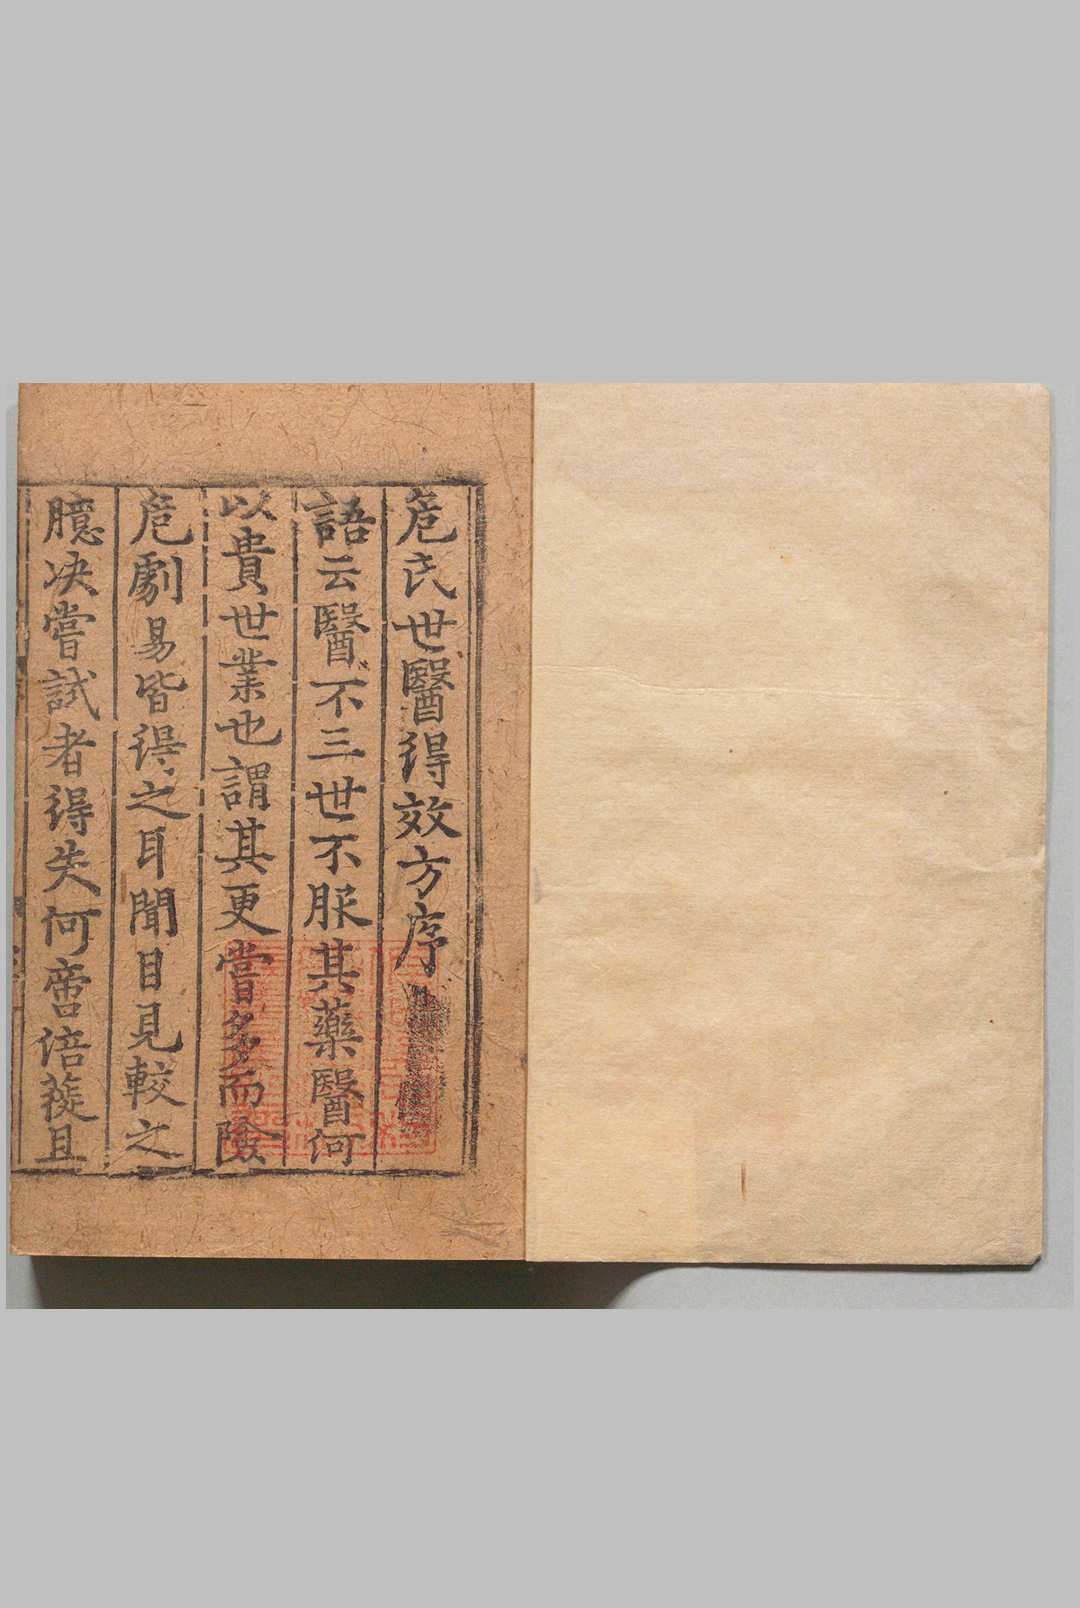 危氏世醫得效方序
語云醫不三世不服其藥醫何
以貴世業也謂其更嘗多而險
危劇易皆得之耳聞目見較之
臆决嘗試者得失何啻倍蓰且